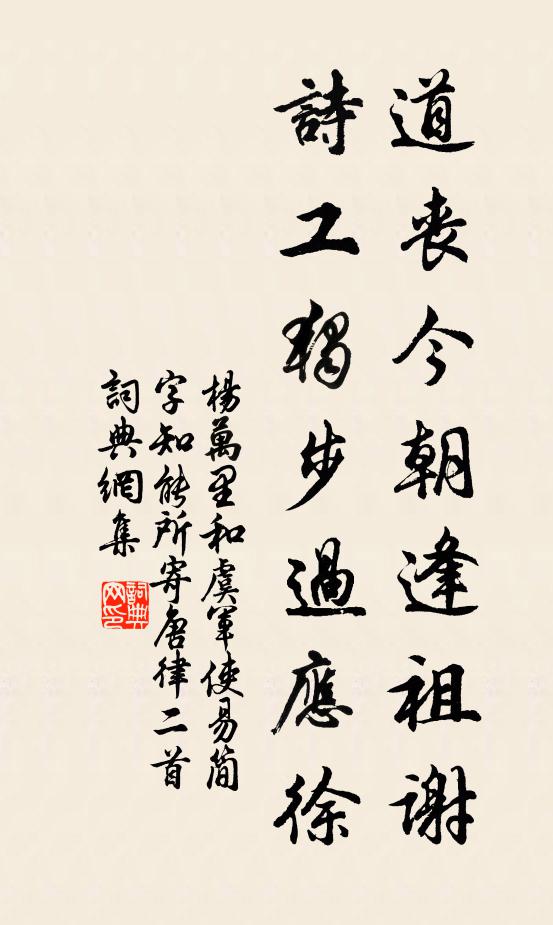 道喪今朝逢祖謝
詩工獨步過應徐
楊萬里和虞軍使易簡
字知能所寄唐律二首
詞典網集
詞典
网印